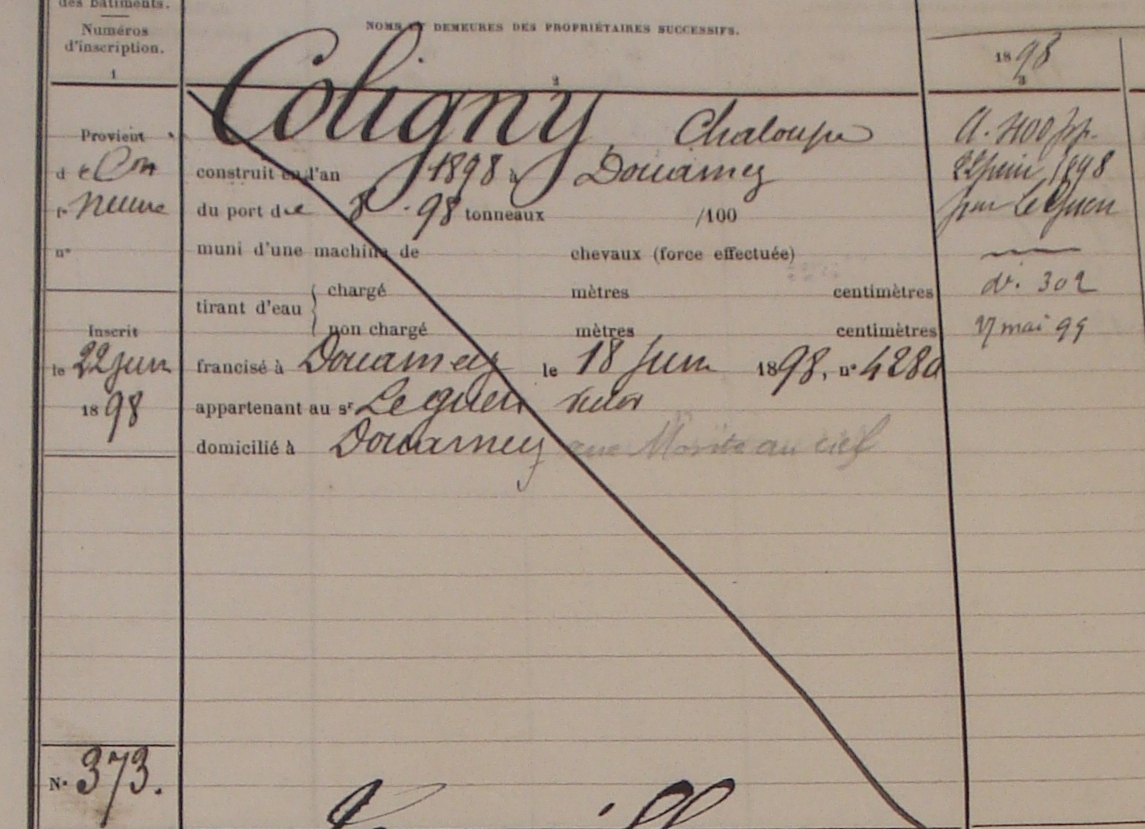 des bâtiments.
Numéros
d'inscription.
1
NOMS ET DEMEURES DES PROPRIÉTAIRES SUCCESSIFS.
2
1898
3
Coligny Chaloupe
Provient
de Con
neuve
n°
construit en l'an 1898 à Douarnez
du port de 8.98 tonneaux /100
muni d'une machine de chevaux (force effectuée)
tirant d'eau { chargé mètres centimètres
non chargé mètres centimètres
Inscrit
le 22 juin
1898
francisé à Douarnez le 18 Juin 1898, n° 4280
appartenant au sr Le guen
domicilié à Douarnez
22 juin 1898
par Le Guen
di. 302
17 mai 99
N° 373.